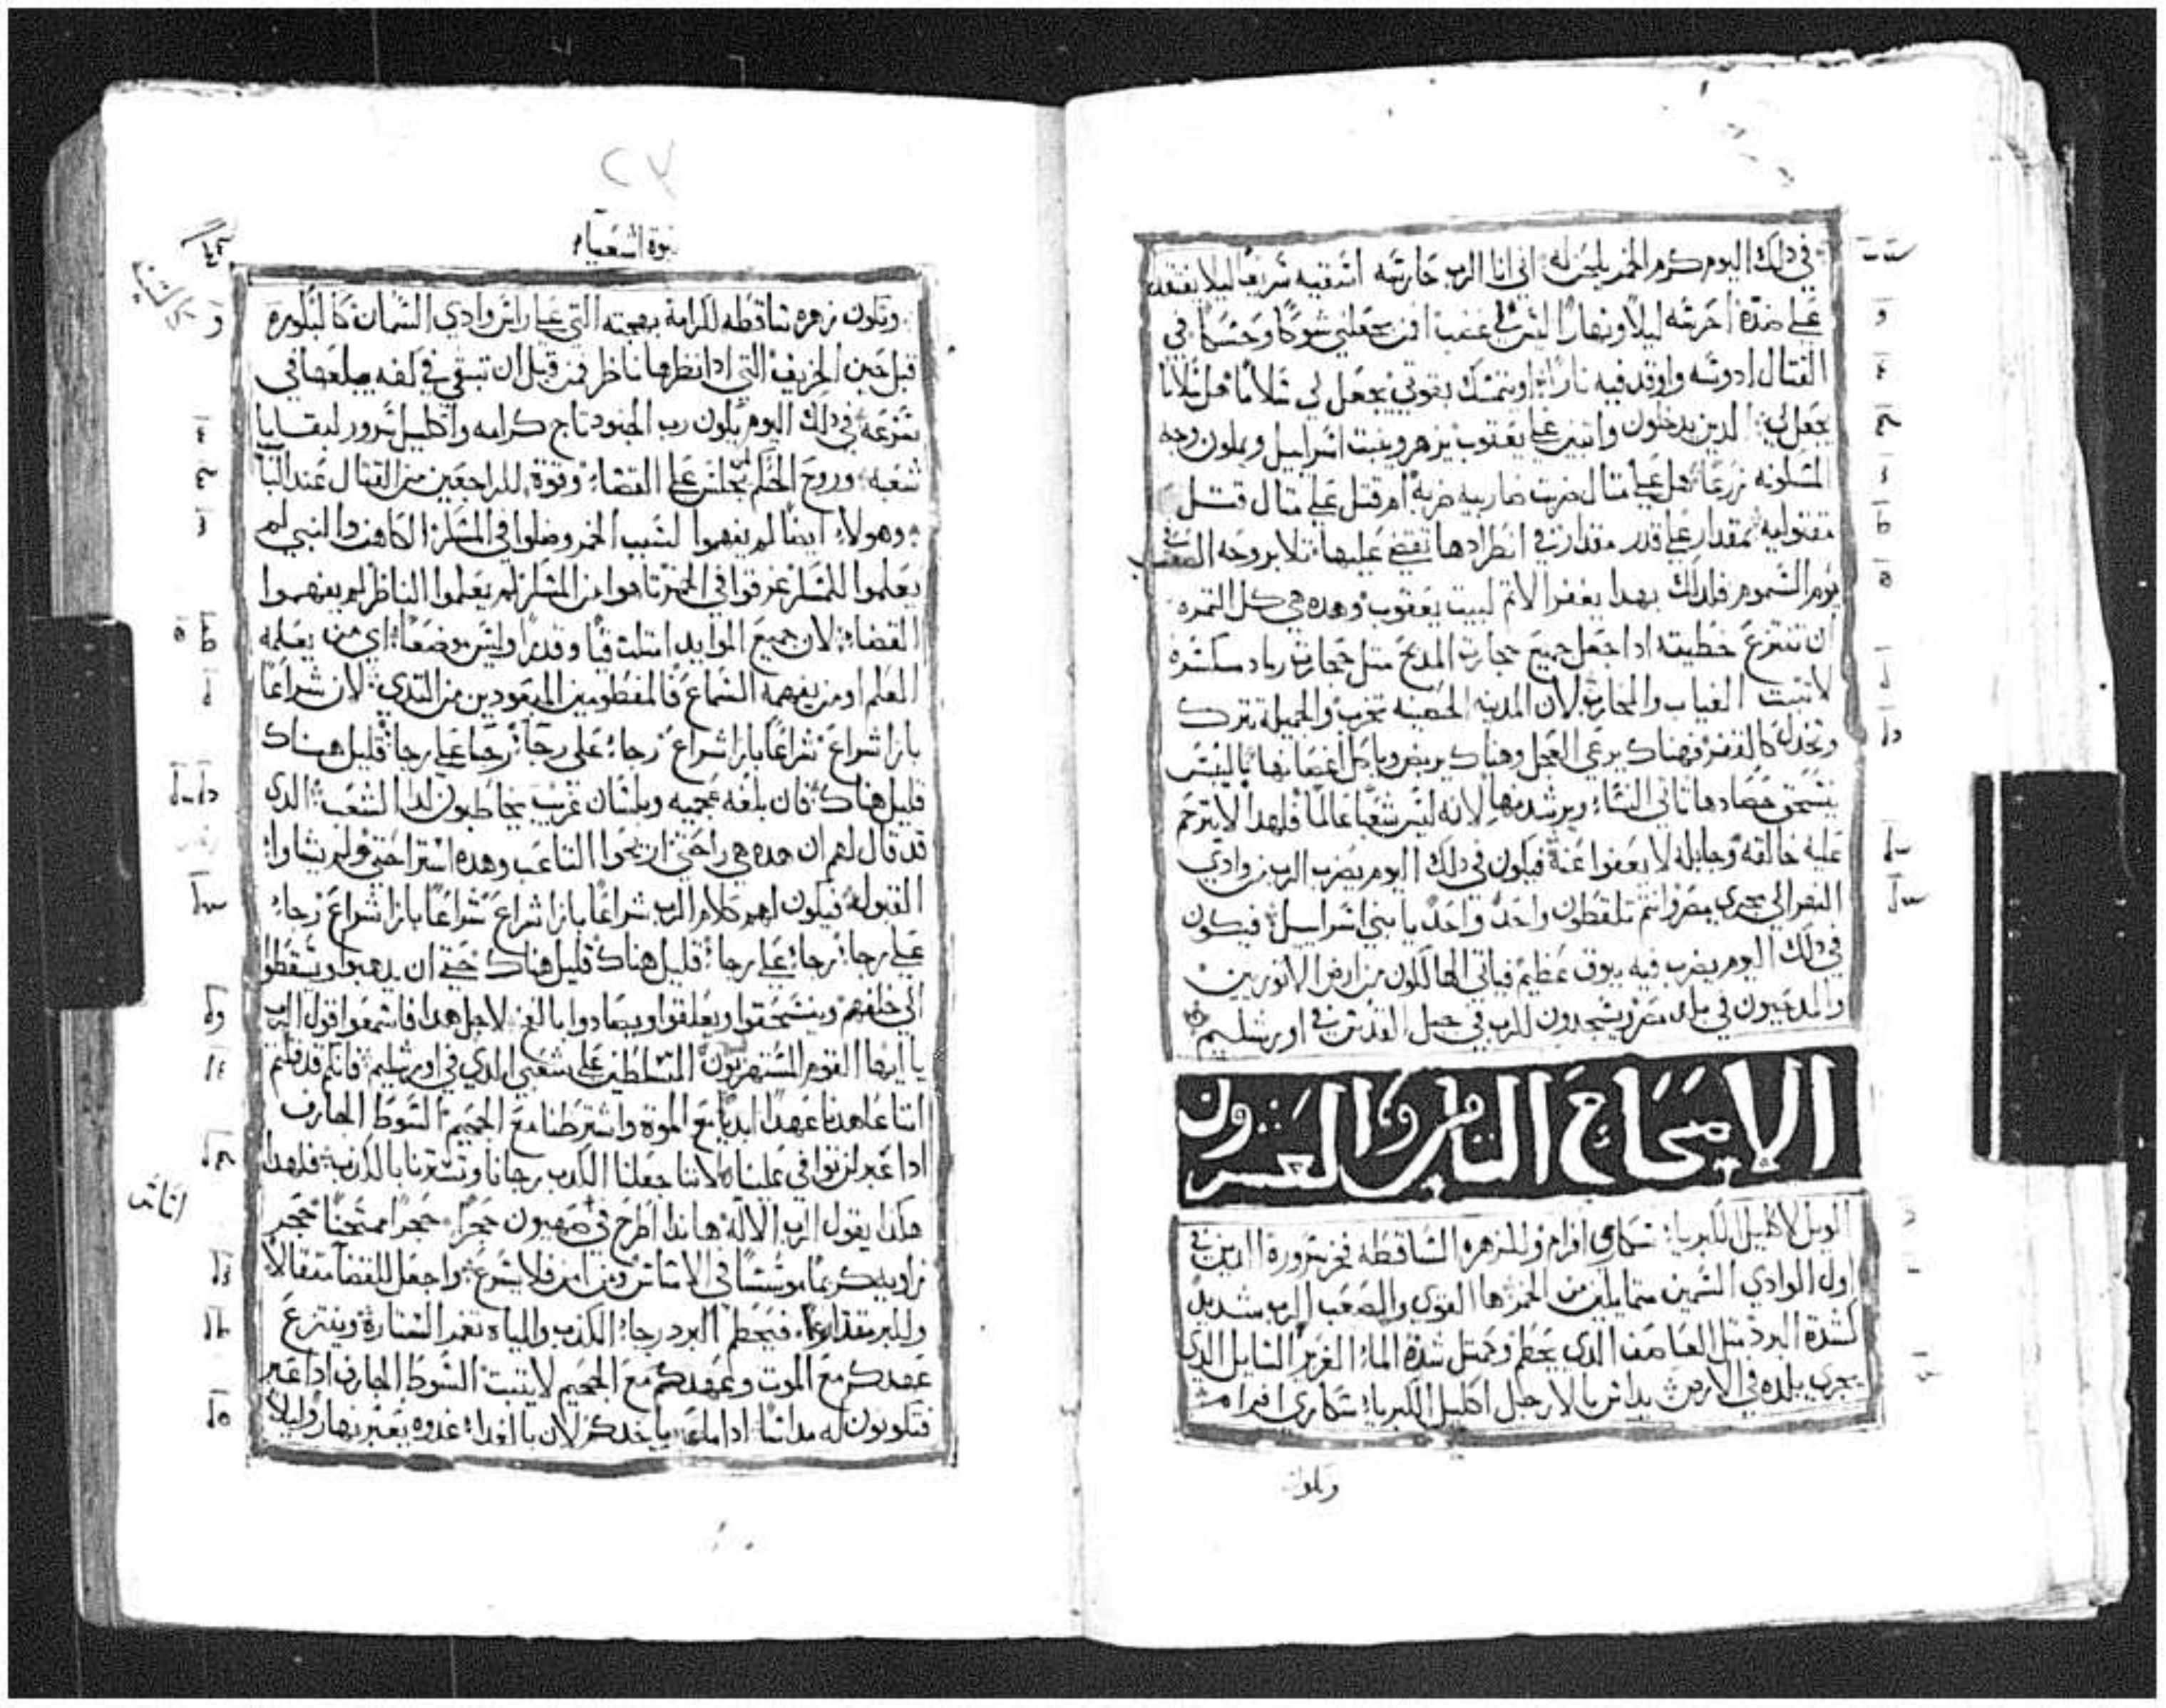 في ذلك اليوم كرم الخمر يلحن له اني انا الرب حارسه اسقيه سريعًا ليلا يفتقد
على ضدة احرسه ليلًا ونهارًا ليس لي غضب من يجعلني شوكًا وحسكًا في
القتال ادوسه واوقد فيه نارًا او يتمسك بقوتي يجعل لي سلامًا هل سلامًا
يجعل لي الدين يدخلون واتبين على يعقوب يزهر وينبت اسراييل ويملون وجه
المسكونه زرعًا هل على متال ضربت ضاربيه ضربه ام قتل على متال قتل
مقتوليه بمقدار على قدر مقدارت في انطرادها تقضي عليها تلا بروحه الصعب في
يوم السموم فلدلك بهدا يغفر الاتم لبيت يعقوب وهده هي كل التمره
ان تنتزع خطيته ادا جعل جميع حجارت المدبح متل حجارت رماد مكسره
لا تتبت الغياب والمحاريب لان المدينه الحصينه تخرب والجميلة تترك
وتخدل كالقفر فهناك يرعى العجل وهناك يربض وياكل اغصانها باليبس
ينسحق حصادها تاتي النساء ويرشدنها لانه ليس شعبًا عالمًا فلهدا لا يترحم
عليه خالقه وجابله لا يعفوا عنه فيكون في دلك اليوم يضرب الرب من وادي
النهر الى مجرى مصر وانتم تلقطون واحد واحد يا بني اسراييل فيكون
في دلك اليوم يضرب فيه ببوق عظيم فياتي الهالكون من ارض الاتوريين
والمدحيون في بلد مصر ويسجدون للرب في جبل القدس في اورشليم
الاصحاح التامن والعشرون
الويل لاكليل الكبريا سكارى افرام وللزهره الساقطه فخر سروره الدين في
اول الوادي السمين متمايلين من الخمر ها القوي والصعب الرب شديد
كشدة البرد متل العاصف الدي يحطم وكمتل شدة الماء الغزير السايل الدي
يجري بلده في الارض يداس بالارجل اكليل الكبريا سكارى افرام
وتكون
نبوة اشعياء
وتكون زهره ساقطه لكرامة بهجته التي على راس وادي السمان كالبلوره
قبل حين الخريف التي ادا نظرها ناظر فمن قبل ان تبقى في كفه يبلعها في
سرعه في دلك اليوم يكون رب الجنود تاج كرامه واكليل سرور لبقايا
شعبه وروح الحكم لمن يجلس على القضاء وقوة للراجعين من القتال عند الباب
وهولاء ايضًا لم يفهموا لسبب الخمر وضلوا في المسكر الكاهن والنبي لم
يعلموا للمسكر غرقوا في الخمر تاهوا من المسكر لم يعلموا الناظر لم يفهموا
القضاء لان جميع الموايد امتلت قيًا وقدرًا وليس موضعًا اي من يعلمه
العلم او من يفهمه السماع فالمفطومين المبعودين من التدي لان شراعًا
بازا شراع شراعًا بازا شراع رجاء على رجاء رجاء على رجا قليل هناك
قليل هناك فان بلغه عجميه وبلسان غريب يخاطبون لدا الشعب الدي
قد قال لهم ان هده هي راحتي اريحوا التاعب وهده استراحتي ولم يشاوا
القبوله فيكون لهم كلام الرب شراعًا بازا شراع شراعًا بازا شراع رجاء
على رجا رجاء على رجا قليل هناك قليل هناك حتى ان يدهبوا ويسقطوا
الى خلفهم وينسحقوا ويعلقوا ويصادوا بالفخ لاجل هدا فاسمعوا قول الرب
يا ايها القوم المستهزيون المتسلطين على شعبي الدي في اورشليم فانكم قد قلتم
اننا عاهدنا عهدًا ابديًا مع الموة واشترطنا مع الجحيم السوط الجارف
ادا عبر لن يوافي علينا لاننا جعلنا الكدب رجانا وتسترنا بالكدب فلهدا
هكدا يقول الرب الاله هاندا اطرح في صهيون حجرًا حجرًا ممتحنًا حجر
زاوية كريمًا موسسًا في الاساس ومن امن فلا يسرع واجعل للقضا متقالًا
وللبر مقدارًا فيحطم البرد رجاء الكدب والمياه تغمر الستارة وينتزع
عهدكم مع الموت وعهدكم مع الجحيم لا يتبت السوط الجارف ادا عبر
فتكونون له مداسًا ادا ماعبر ياخدكم لان بالغداء غدوه يعبر نهارًا وليلًا